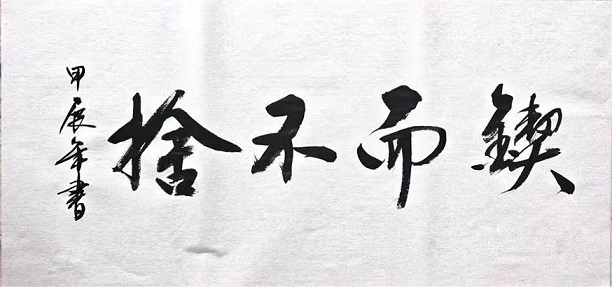 鍥而不捨
甲辰年書